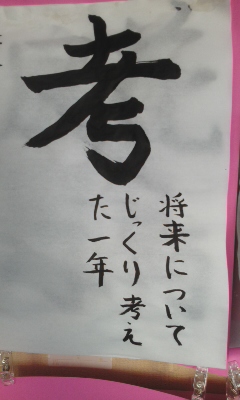 考
将来について
じっくり考え
た一年